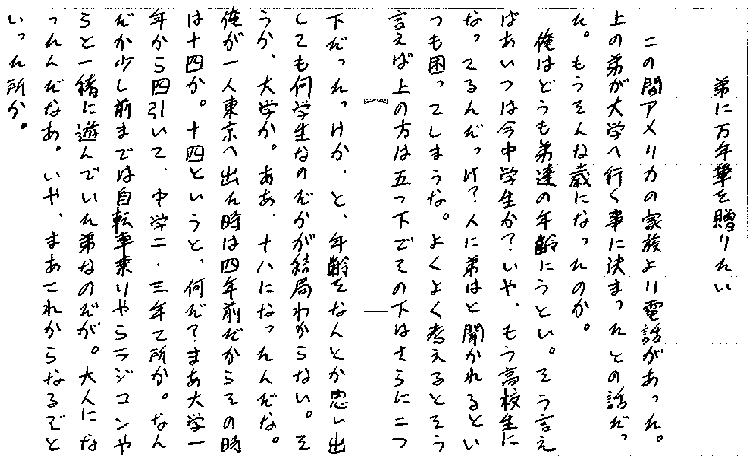 弟に万年筆を贈りたい
この間アメリカの家族より電話があった。
上の弟が大学へ行く事に決まったとの話だっ
た。もうそんな歳になったのか。
俺はどうも弟達の年齢にうとい。そう言え
ばあいつは今中学生か?いや、もう高校生に
なってるんだっけ?人に弟はと聞かれるとい
つも困ってしまうな。よくよく考えるとそう
言えば上の方は五つ下でその下はさらに二つ
下だったっけか、と、年齢をなんとか思い出
しても何学生なのだかが結局わからない。そ
うか、大学か。ああ、十八になったんだな。
俺が一人東京へ出た時は四年前だからその時
は十四か。十四というと、何だ?まあ大学一
年から四引いて、中学二・三年て所か。なん
だか少し前までは自転車乗りやらラジコンや
らと一緒に遊んでいた弟なのだが。大人にな
ったんだなあ。いや、まあこれからなるぞと
いった所か。